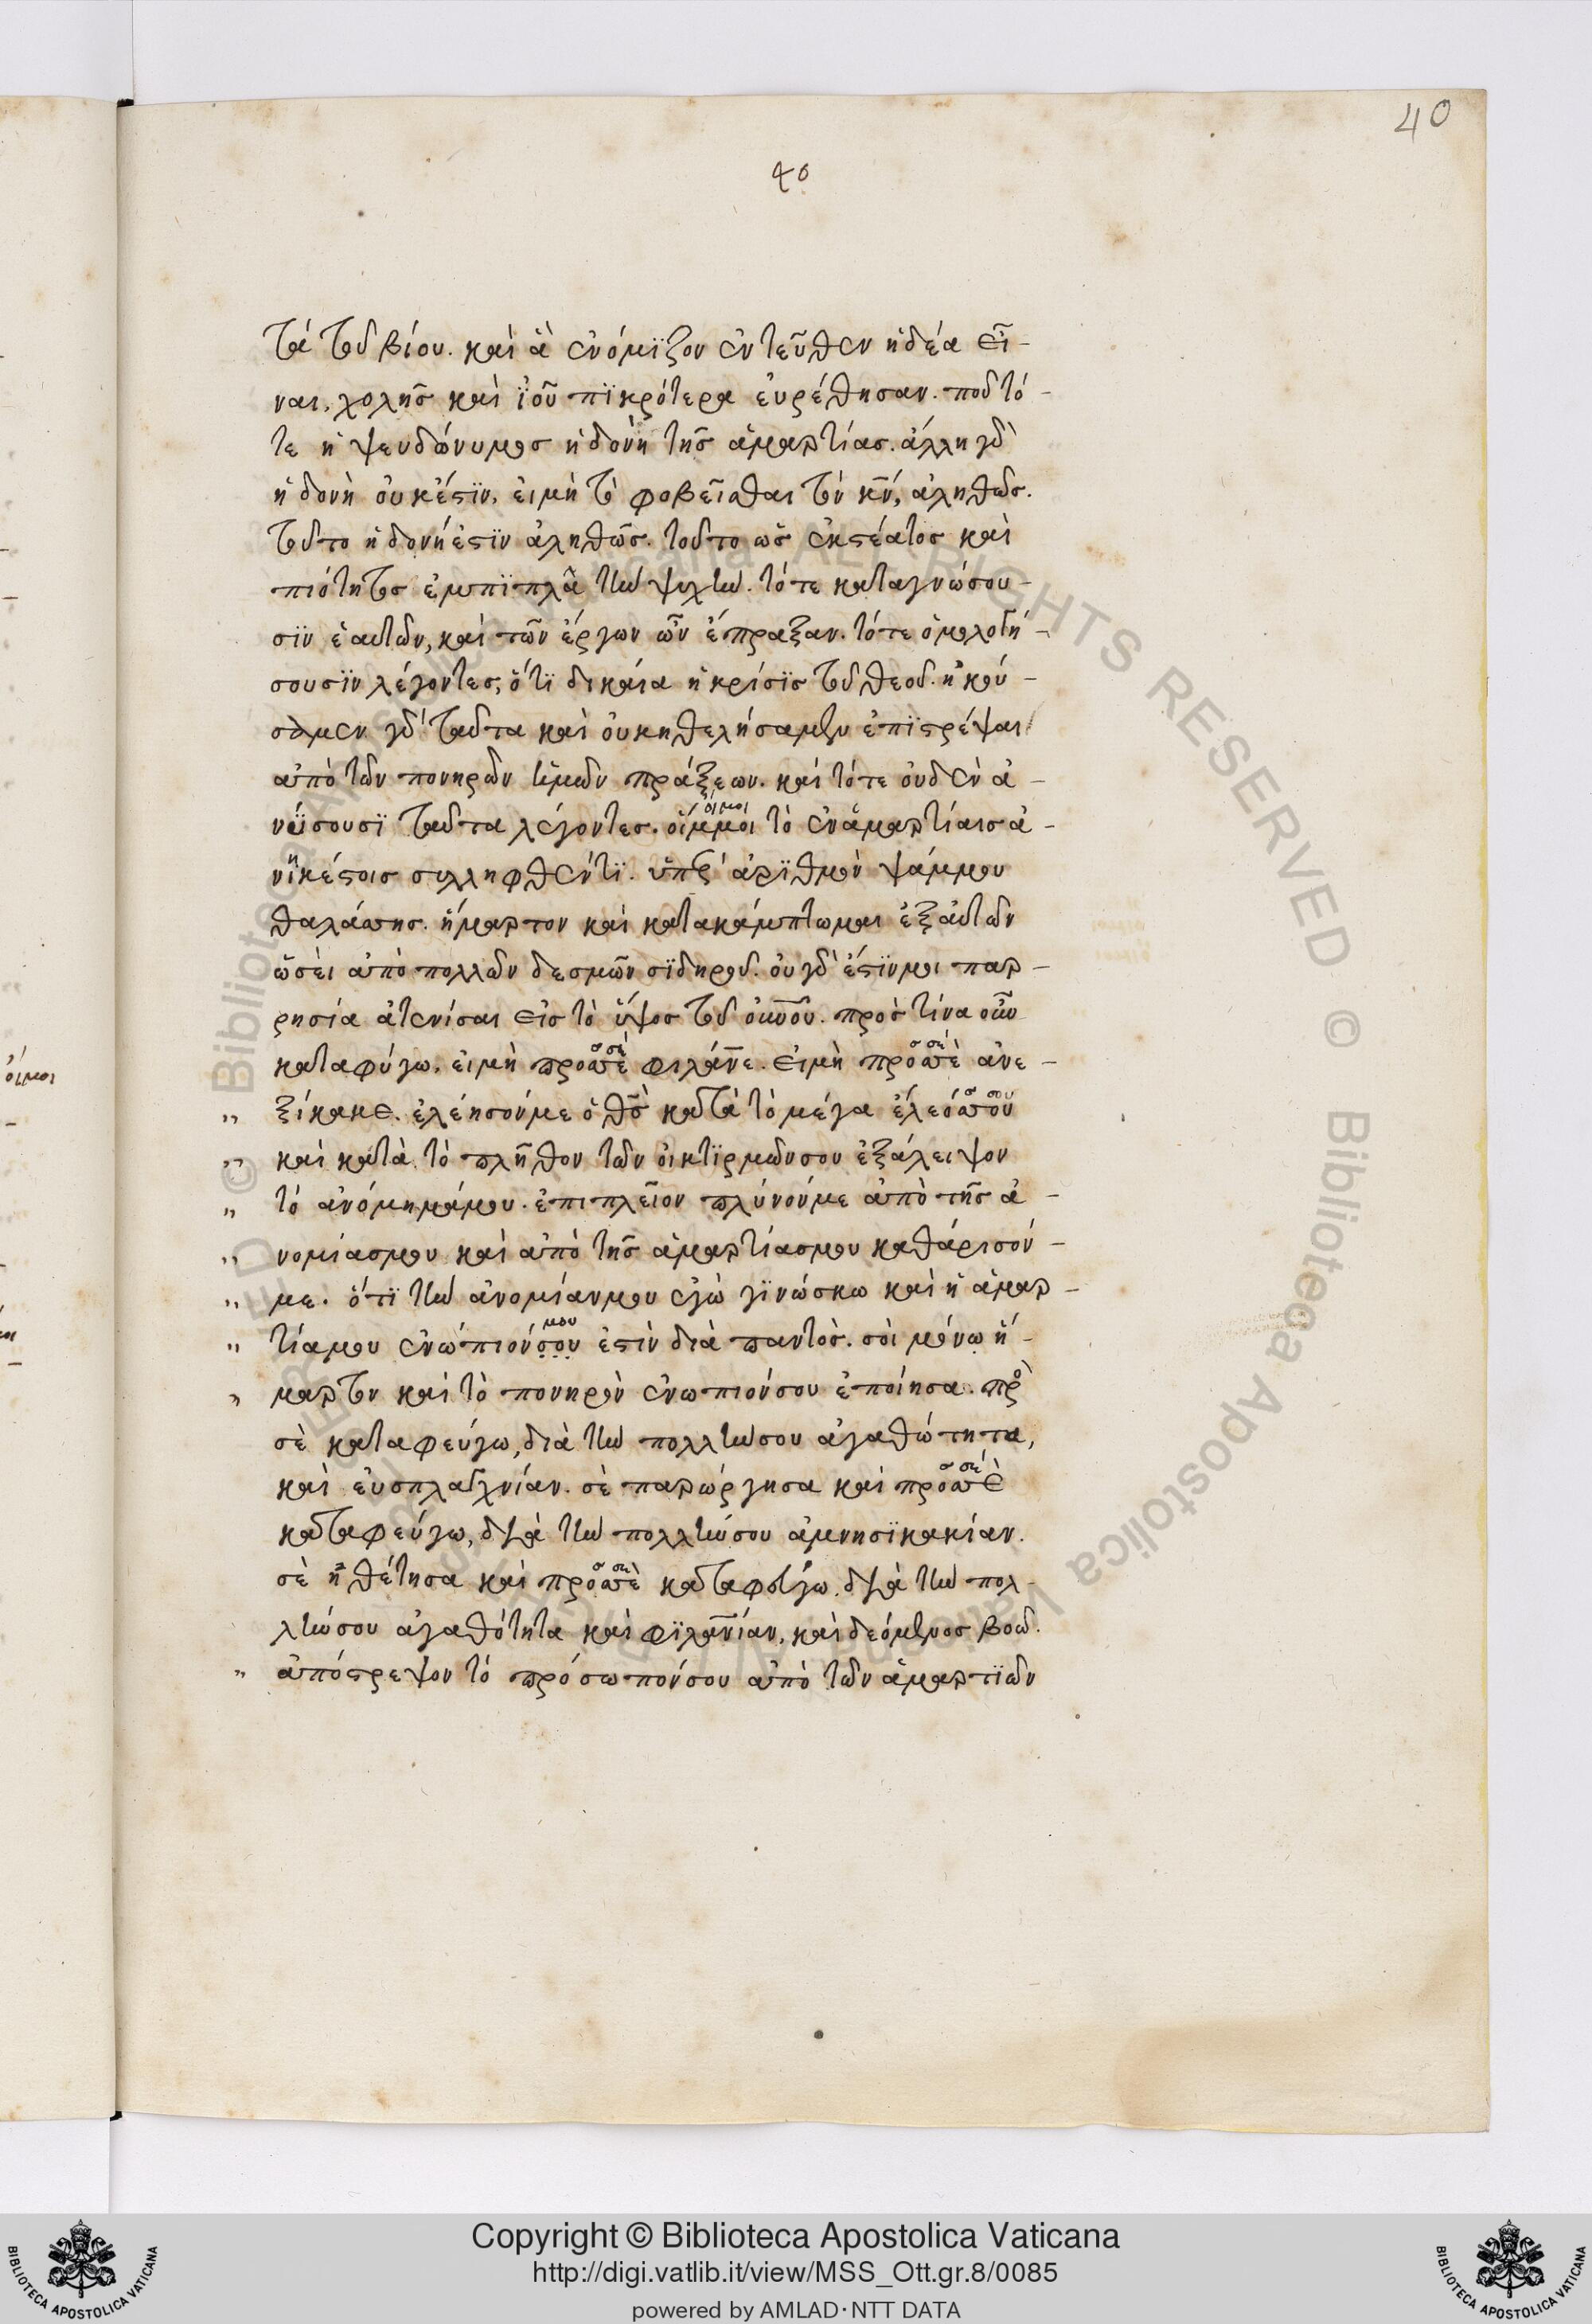 40
40
τὰ τοῦ βίου. καὶ ἃ ἐνόμϊζον ἐντεῦθεν ἡδέα εἶ-
ναι, χολῆς καὶ ἰοῦ πϊκρότερα εὑρέθησαν. ποῦ τό-
τε ἡ ψευδώνυμος ἡδονὴ τῆς ἁμαρτίας. ἄλλη γὰρ
ἡδονὴ οὐκέστϊν, εἰμὴ τὸ φοβεῖσθαι τὸν κν̄, ἀληθῶς.
τοῦτο ἡδονήἐστϊν ἀληθῶς. τοῦτο ὡς ἐκστέατος καὶ
πιότητος ἐμπϊπλᾶ τὴν ψυχὴν. τότε καταγνώσου-
σϊν ἑαυτῶν, καὶ τῶν ἔργων ὧν ἔπραξαν. τότε ὁμολογή-
σουσϊν λέγοντες, ὅτϊ δικαία ἡ κρίσϊς τοῦ θεοῦ. ἠκού-
σαμεν γὰρ ταῦτα καὶ οὐκηθελήσαμεν ἐπϊστρέψαι
ἀπὸ τῶν πονηρῶν ἡμῶν πράξεων. καὶ τότε οὐδὲν ἀ-
νύσουσϊ ταῦτα λέγοντες. οἴμμοι τὸ ἐνἁμαρτίαις ἀ-
οἴμοι
νηκέστοις συλληφθέντϊ. ὑπὲρ ἀρϊθμὸν ψάμμου
θαλάσσης. ἥμαρτον καὶ κατακάμπτωμαι ἐξαὐτῶν
ὡσεὶ ἀπὸ πολλῶν δεσμῶν σϊδηροῦ. οὐ γὰρ ἔστϊνμοι παρ-
ρησία ἀτενίσαι εἰς τὸ ὕψος τοῦ οὐνοῦ. πρὸς τίνα οὖν
καταφύγω, εἰμὴ πρὸςσὲ φιλάνε. εἰμὴ πρὸςσὲ ἀνε-
οἴμοι
„ ξίκακε. ἐλέησόνμε ὁ θς̄ κατὰ τὸ μέγα ἔλεόςσου
„ καὶ κατὰ τὸ πλῆθον τῶν οἰκτϊρμῶνσου ἐξάλειψον
„ τὸ ἀνόμημάμου. ἐπιπλεῖον πλύνόνμε ἀπὸ τῆς ἀ-
„ νομίαςμου καὶ ἀπὸ τῆς ἁμαρτίαςμου καθάρισόν-
„ με. ὅτϊ τὴν ἀνομίανμου ἐγὼ γϊνώσκω καὶ ἡ ἁμαρ-
„ τίαμου ἐνώπιόνσου ἐστὶν διὰ παντὸς. σοὶ μόνω ἥ-
μου
„ μαρτον καὶ τὸ πονηρὸν ἐνωπιόνσου ἐποίησα. πρὸς
σὲ καταφεύγω, διὰ τὴν πολλήνσου ἀγαθώτητα,
καὶ εὐσπλαγχνίαν. σὲ παρώργησα καὶ πρὸςσὲ
καταφεύγω, διὰ τὴν πολλήνσου ἀμνησϊκακίαν.
σὲ ἠθέτησα καὶ πρὸςσὲ καταφεύγω, διὰ τὴν πολ-
λήνσου ἀγαθότητα καὶ φϊλανίαν, καὶ δεόμενος βοῶ.
„ ἀπόστρεψον τὸ πρόσωπόνσου ἀπὸ τῶν ἁμαρτϊῶν
Copyright © Biblioteca Apostolica Vaticana
http://digi.vatlib.it/view/MSS_Ott.gr.8/0085
powered by AMLAD·NTT DATA